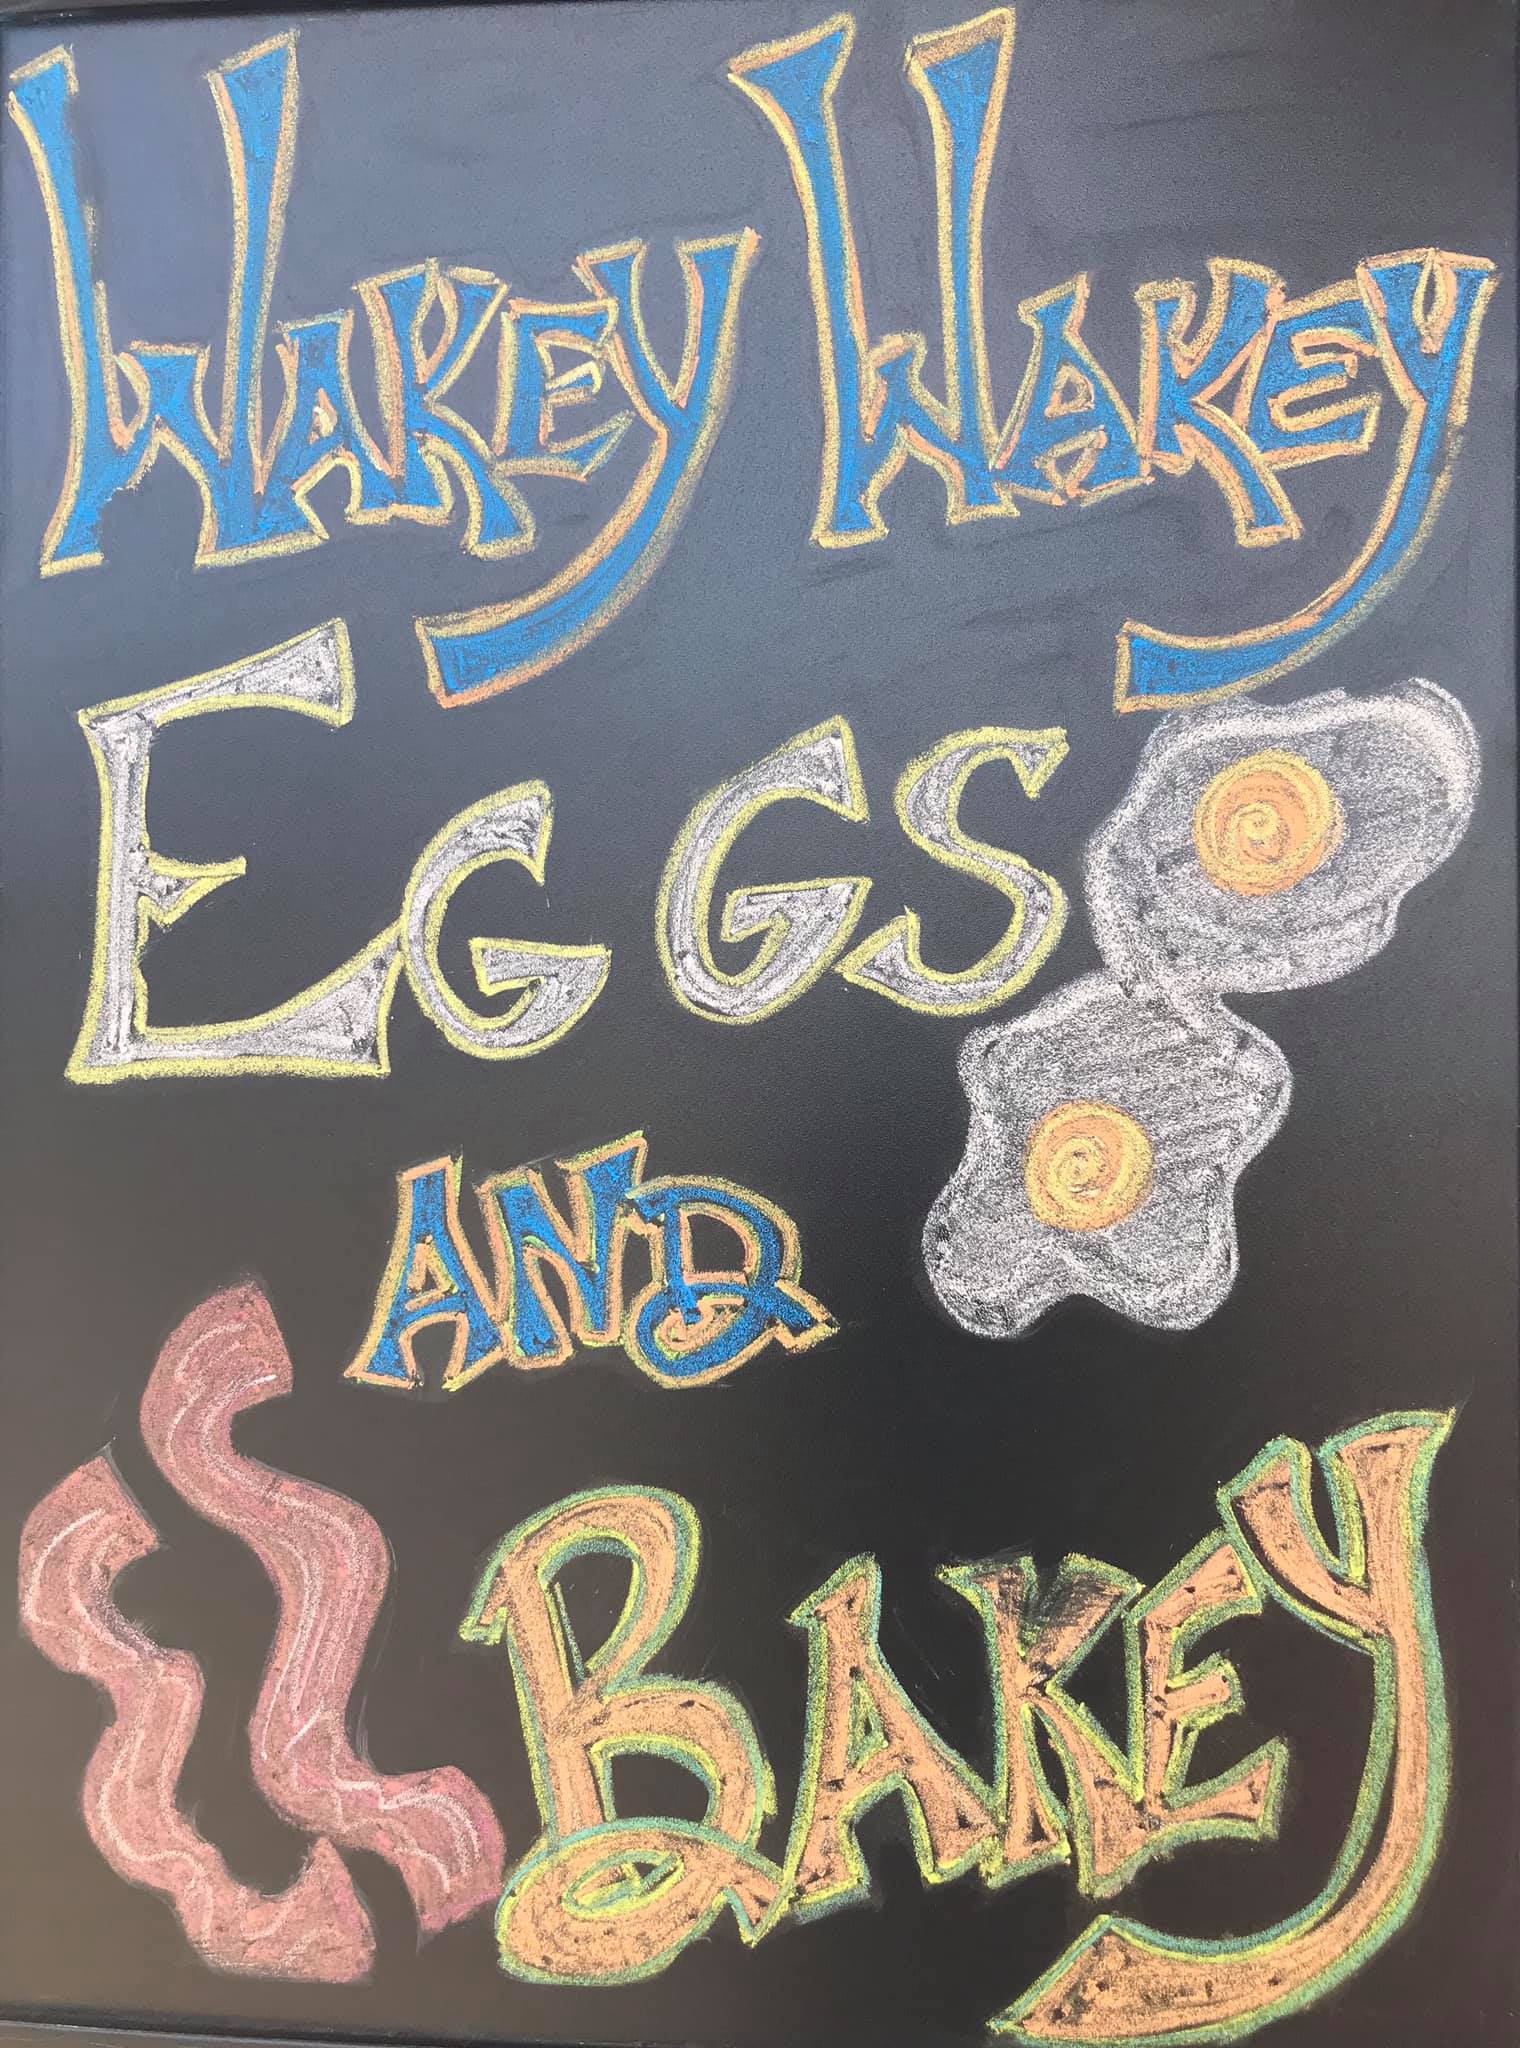 WAKEY WAKEY
EGGS
AND
BAKEY